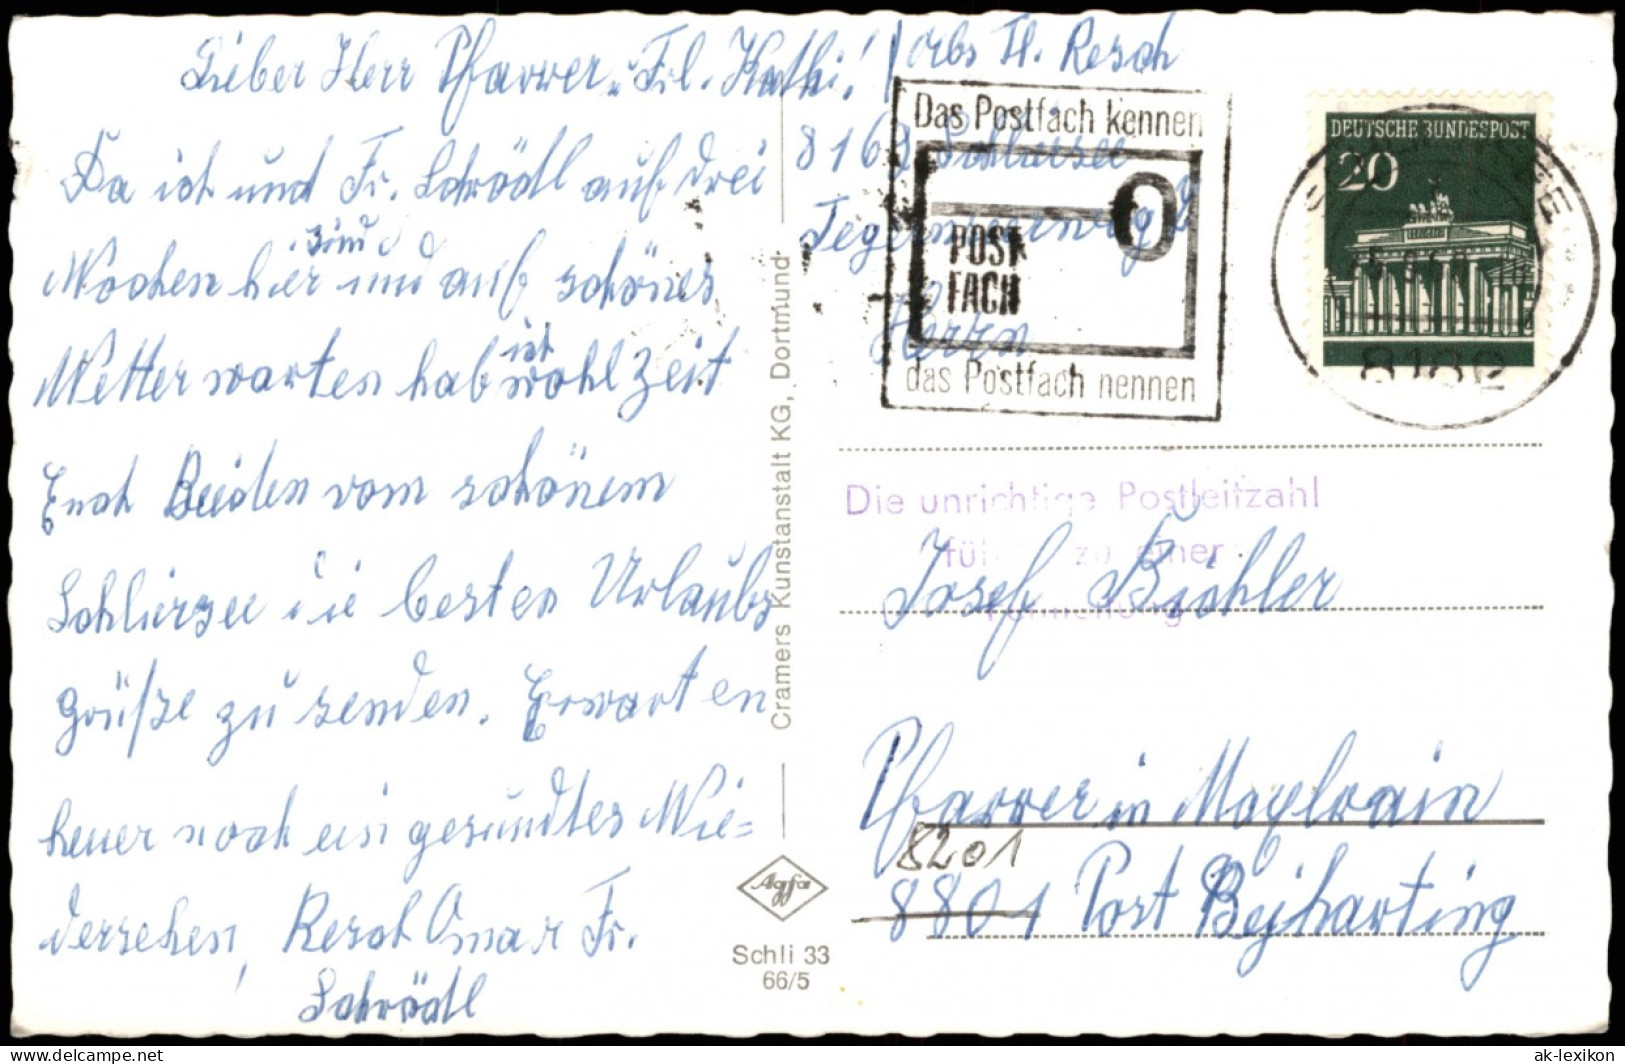 Lieber Herr Pfarrer u. Frl. Kathi!
Da ich und Fr. Schrödl auf drei
Wochen hier sind und auf schönes
Wetter warten hab ich wohl Zeit
Euch Beiden vom schönem
Schliersee die besten Urlaubs
grüße zu senden. Erwarten
heuer noch ein gesundtes Wie=
dersehen, Resch Omar Fr.
Schrödl
Cramers Kunstanstalt KG, Dortmund
Agfa
Schli 33
66/5
Abs Th. Resch
8162 Schliersee
Tegernseerweg
Das Postfach kennen
POST
FACH
das Postfach nennen
DEUTSCHE BUNDESPOST
20
8162
Herrn
Die unrichtige Postleitzahl
zu einer
Josef Bichler
Pfarrer in Maxlrain
8201
8801 Post Beiharting
ak-lexikon
www.delcampe.net